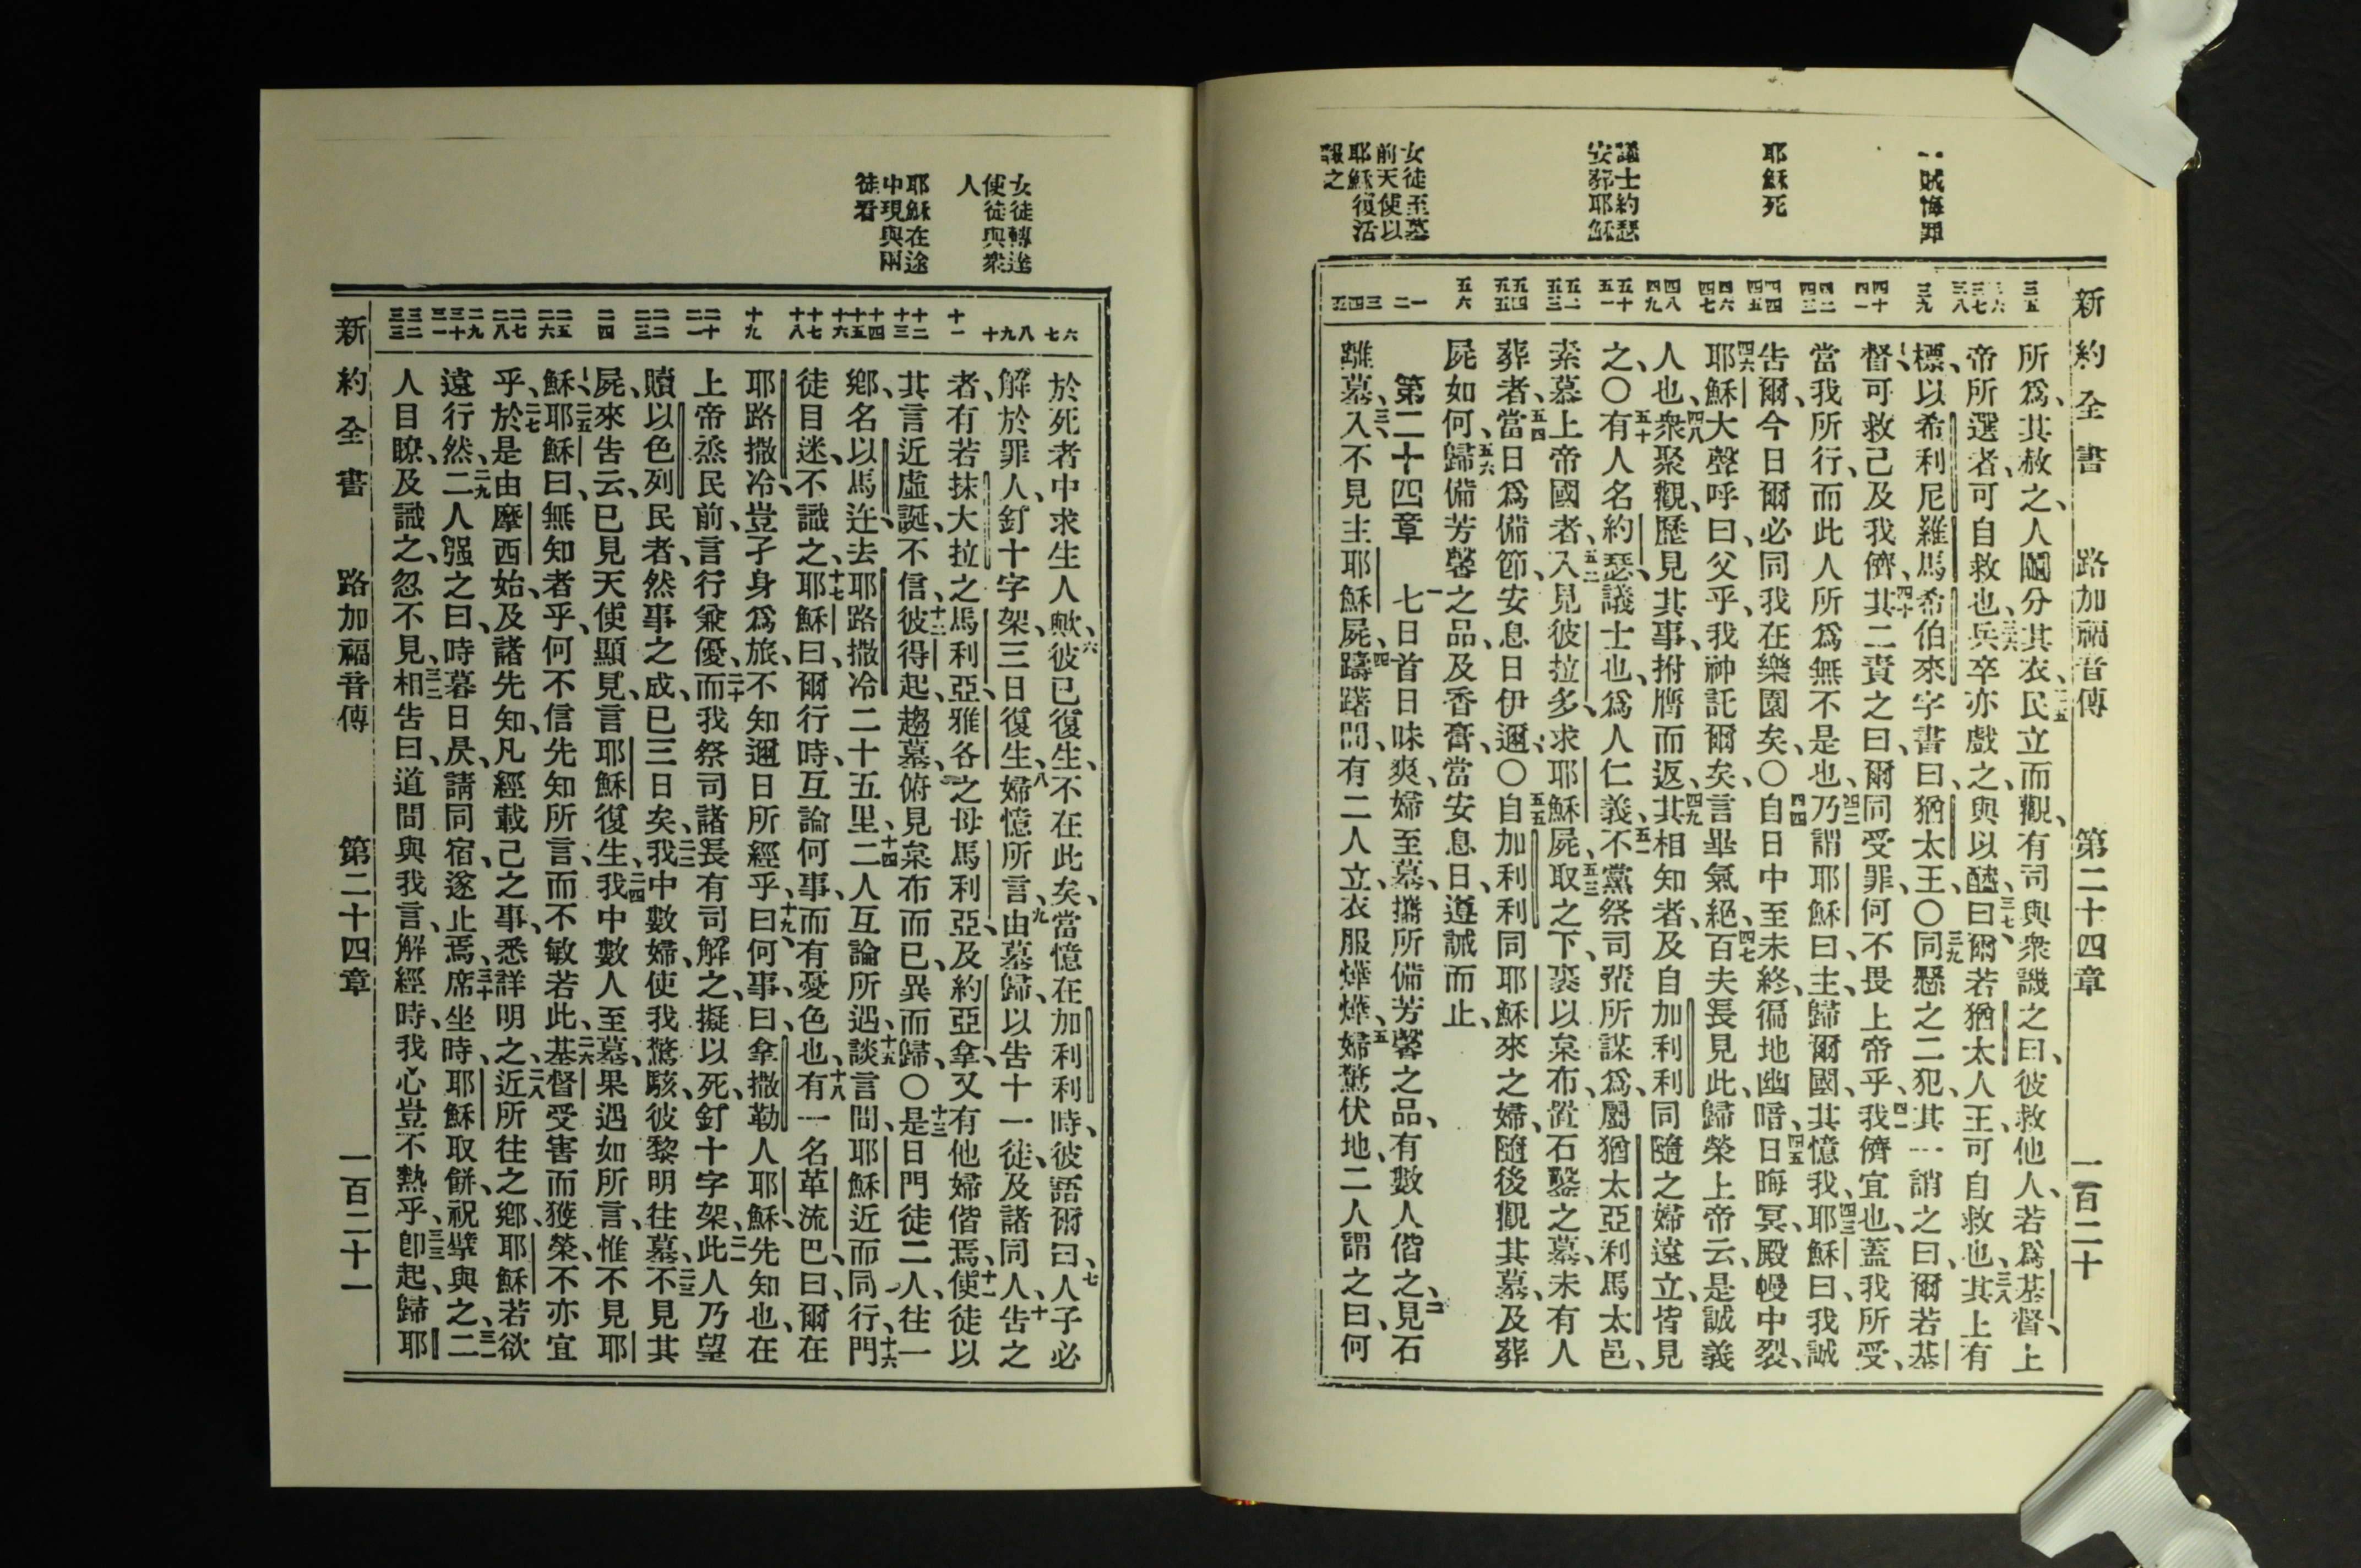 新約全書 路加福音傳 第二十四章 一百二十
一賊悔罪
耶穌死
議士約瑟
安葬耶穌
女徒至墓
前天使以
耶穌復活
報之
三五 三六 三七 三八 三九 四十 四一 四二 四三 四四 四五 四六 四七 四八 四九 五十 五一 五二 五三 五四 五五 五六 一 二 三 四 五
所爲、其赦之、人鬮分其衣、三五民立而觀、有司與衆譏之曰、彼救他人、若爲基督、上
帝所選者、可自救也、三六兵卒亦戲之、與以醯、三七曰、爾若猶太人王、可自救也、三八其上有
標、以希利尼羅馬希伯來字書曰、猶太王、〇三九同懸之二犯、其一誚之曰、爾若基
督、可救己及我儕、四十其二責之曰、爾同受罪、何不畏上帝乎、四一我儕宜也、蓋我所受、
當我所行、而此人所爲無不是也、四二乃謂耶穌曰、主、歸爾國、其憶我、四三耶穌曰、我誠
告爾、今日爾必同我在樂園矣、〇四四自日中至未終、徧地幽暗、四五日晦冥、殿幔中裂、
四六耶穌大聲呼曰、父乎、我神託爾矣、言畢氣絕、四七百夫長見此、歸榮上帝云、是誠義
人也、四八衆聚觀、歷見其事、拊膺而返、四九其相知者、及自加利利同隨之婦、遠立、皆見
之、〇五十有人名約瑟、議士也、爲人仁義、五一不黨祭司輩所謀爲、屬猶太亞利馬太邑、
素慕上帝國者、五二入見彼拉多、求耶穌屍、五三取之下、裹以枲布、置石鑿之墓、未有人
葬者、五四當日爲備節、安息日伊邇、〇五五自加利利同耶穌來之婦、隨後觀其墓、及葬
屍如何、五六歸備芳馨之品、及香膏、當安息日、遵誡而止、
第二十四章 一七日首日昧爽、婦至墓、攜所備芳馨之品、有數人偕之、二見石
離墓、三入、不見主耶穌屍、四躊躇間、有二人立、衣服燁燁、五婦驚伏地、二人謂之曰、何
女徒轉達
使徒與衆
人
耶穌在途
中現與兩
徒看
六 七 八 九 十 十一 十二 十三 十四 十五 十六 十七 十八 十九 二十 二一 二二 二三 二四 二五 二六 二七 二八 二九 三十 三一 三二 三三
於死者中求生人歟、六彼已復生、不在此矣、當憶在加利利時、彼語爾曰、七人子必
解於罪人、釘十字架、三日復生、八婦憶所言、九由墓歸、以告十一徒、及諸同人、十告之
者、有若抹大拉之馬利亞、雅各之母馬利亞、及約亞拿、又有他婦偕焉、十一使徒以
其言近虛誕、不信、十二彼得起、趨墓、俯見枲布而已、異而歸、〇十三是日門徒二人、往一
鄉、名以馬迕、去耶路撒冷二十五里、十四二人互論所遇、十五談言間、耶穌近而同行、十六門
徒目迷、不識之、十七耶穌曰、爾行時、互論何事、而有憂色也、十八有一名革流巴、曰、爾在
耶路撒冷、豈孑身爲旅、不知邇日所經乎、十九曰、何事、曰、拿撒勒人耶穌、先知也、在
上帝烝民前、言行兼優、二十而我祭司諸長有司、解之、擬以死、釘十字架、二一此人乃望
贖以色列民者、然事之成、已三日矣、二二我中數婦、使我驚駭、彼黎明往墓、二三不見其
屍、來告云、已見天使顯見、言耶穌復生、二四我中數人至墓、果遇如所言、惟不見耶
穌、二五耶穌曰、無知者乎、何不信先知所言、而不敏若此、二六基督受害而獲榮、不亦宜
乎、二七於是由摩西始、及諸先知、凡經載己之事、悉詳明之、二八近所往之鄉、耶穌若欲
遠行然、二九二人强之曰、時暮日昃、請同宿、遂止焉、三十席坐時、耶穌取餅、祝擘與之、三一二
人目瞭、及識之、忽不見、三二相告曰、道間與我言、解經時、我心豈不熱乎、三三卽起、歸耶
新約全書 路加福音傳 第二十四章 一百二十一